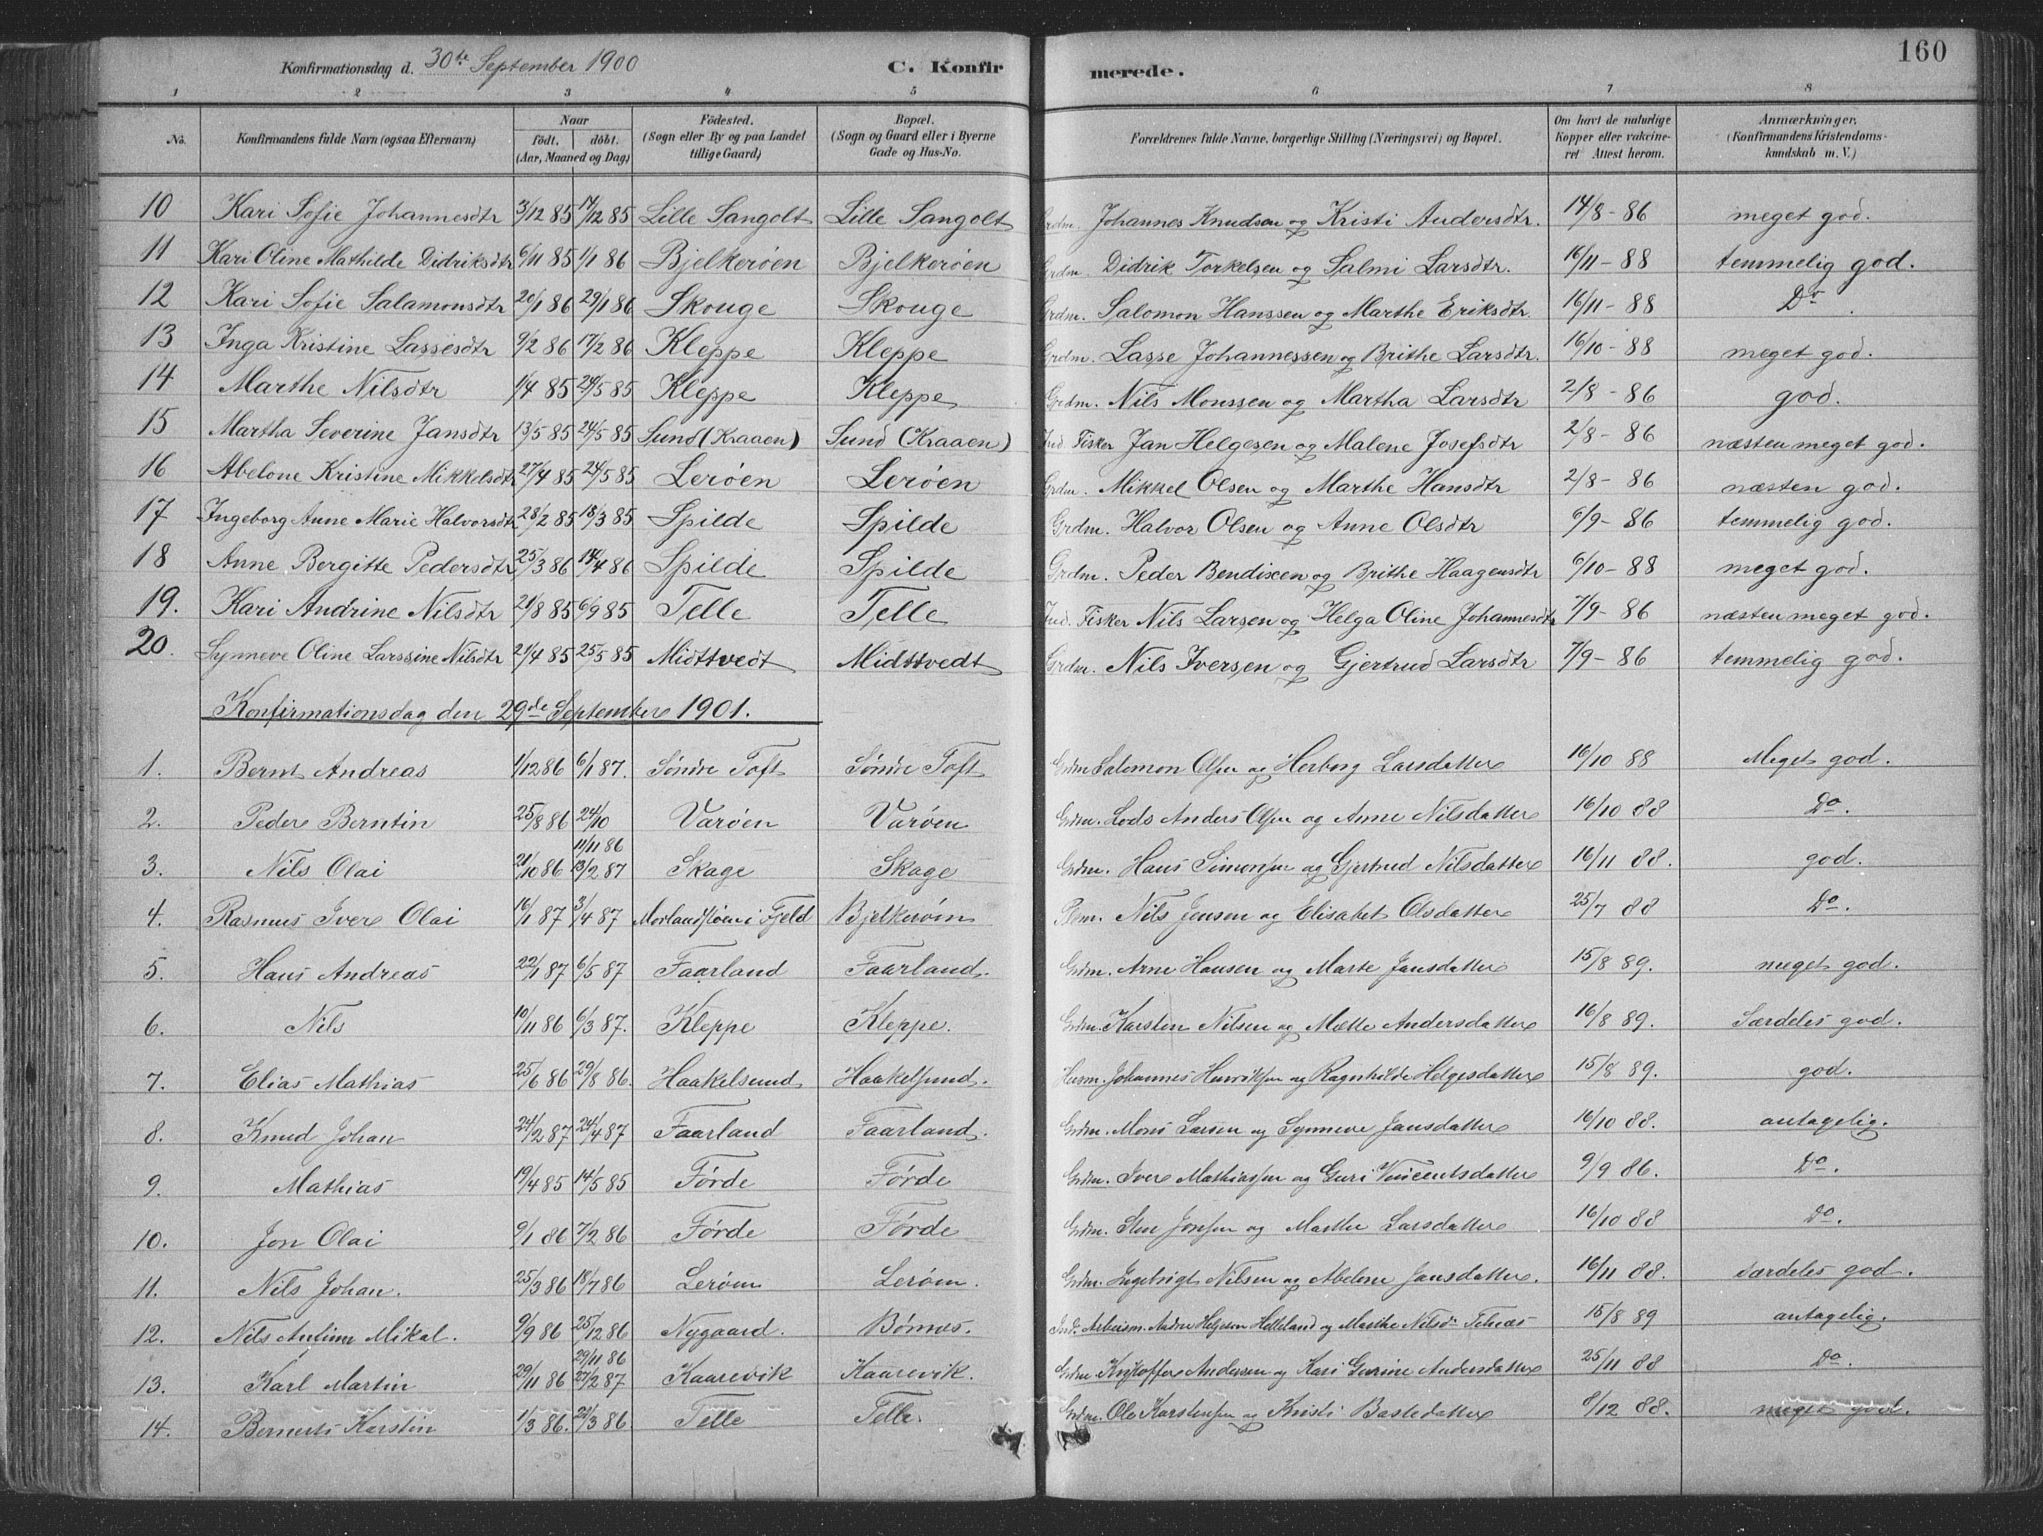 160
Konfirmationsdag d. 30te September 1900 C. Konfirmerede.
1 2 3 4 5 6 7 8
No. Konfirmandens fulde Navn (ogsaa Efternavn) Naar født, døbt. (Aar, Maaned og Dag) Fødested. (Sogn eller By og paa Landet tillige Gaard) Bopæl. (Sogn og Gaard eller i Byerne Gade og Hus-No. Forældrenes fulde Navne, borgerlige Stilling (Næringsvei) og Bopæl. Om havt de naturlige Kopper eller vakcineret Attest herom. Anmærkninger. (Konfirmandens Kristendomskundskab m. V.)
10 Kari Sofie Johannesdtr 3/12 85 17/12 85 Lille Sangolt Lille Sangolt Grdm. Johannes Knudsen og Kristi Andersdtr. 14/8-86 meget god.
11 Kari Oline Mathilde Didriksdtr 6/11 85 1/1 86 Bjelkerøen Bjelkerøen Grdm. Didrik Torkelsen og Salmi Larsdtr. 16/11-88 temmelig god.
12 Kari Sofie Salamonsdtr 20/1 86 29/1 86 Skouge Skouge Grdm. Salomon Hanssen og Marthe Eriksdtr. 16/11-88 Do.
13 Inga Kristine Lassesdtr 9/2 86 17/2 86 Kleppe Kleppe Grdm. Lasse Johannessen og Brithe Larsdtr. 16/10-88 meget god.
14 Marthe Nilsdtr 1/4 85 24/5 85 Kleppe Kleppe Grdm. Nils Monssen og Martha Larsdtr 2/8-86 god.
15 Martha Severine Jansdtr 13/5 85 24/5 85 Sund (Kraaen) Sund (Kraaen) Ind. Fisker Jan Helgesen og Malene Josefsdtr 2/8-86 næsten meget god.
16 Abelone Kristine Mikkelsdtr 27/4 85 24/5 85 Lerøen Lerøen Grdm. Mikkel Olsen og Marthe Hansdtr 2/8-86 næsten god.
17 Ingeborg Anne Marie Halvorsdtr 28/2 85 18/3 85 Spilde Spilde Grdm. Halvor Olsen og Anne Olsdtr 6/9-86 temmelig god.
18 Anne Bergitte Pedersdtr 25/3 86 14/4 86 Spilde Spilde Grdm. Peder Bendixen og Brithe Haagensdtr 6/10-88 meget god.
19. Kari Andrine Nilsdtr 21/8 85 6/9 85 Telle Telle Ind. Fisker Nils Larsen og Helga Oline Johannesdtr 7/9-86 næsten meget god.
20. Synneve Oline Larssine Nilsdtr 21/4 85 25/5 85 Midttvedt Midttvedt Grdm. Nils Iversen og Gjertrud Larsdtr 7/9-86 temmelig god.
Konfirmationsdag den 29de September 1901.
1. Bernt Andreas 1/12 86 6/1 87. Søndre Toft Søndre Toft Grdm Salomon Olsen og Herborg Larsdatter 16/10 88 Meget god.
2. Peder Berntin 25/8 86 24/10 Varøen Varøen Grdm. Lods Anders Olsen og Anne Nilsdatter 16/10 88 Do.
3. Nils Olai 21/10 86 11/11 86 13/2 87 Skage Skage Grdm. Hans Simonsen og Gjertrud Nilsdatter 16/11 88. god.
4. Rasmus Iver Olai 16/1 87 3/4 87 Morlandsøen i Fjeld Bjelkerøen Nils Jensen og Elisabet Olsdatter 25/7 88 Do.
5. Hans Andreas 22/1 87 6/5 87 Faarland Faarland. Grdm. Arne Hansen og Marte Jansdatter 15/8 89. meget god.
6. Nils 10/11 86 6/3 87. Kleppe Kleppe. Grdm. Karsten Nilsen og Mette Andersdatter 16/8 89. Særdeles god.
7. Elias Mathias 25/6 86 29/8 86. Haakelsund Haakelsund. Husm. Johannes Henriksen og Ragnhilde Helgesdatter 15/8 89. god.
8. Knud Johan 24/2 87 24/4 87 Faarland Faarland. Grdm. Mons Larsen og Synneve Jansdatter 16/10 88. antagelig.
9. Mathias 19/4 85 14/5 85 Førde Førde Grdm. Iver Mathiassen og Guri Vincentsdatter 9/9 86. Do.
10. Jon Olai 9/1 86 7/2 86 Førde Førde Grdm. Sten Jonsen og Marthe Larsdatter 16/10 88 Do.
11. Nils Johan. 25/3 86 18/7 86 Lerøen Lerøen. Grdm. Ingebrigt Nilsen og Abelone Jansdatter. 16/11 88. særdeles god.
12. Nils Mikal. 9/9 86 25/12 86 Nygaard. Børnes. Ind. Arbeidsm. Andre Helgesen Helleland og Marthe Nilsd. 15/8 89 antagelig.
13. Karl Martin 29/11 86 29/11 86 27/2 87 Kaarevik Kaarevik. Grdm. Kristoffer Andersen og Kari Gurine Andersdatter 25/11 88 Do.
14. Berner Karstin 1/3 86. 22/3 86. Telle Telle. Grdm. Ole Karstensen og Kristi Bastedatter 8/12 88. meget god.